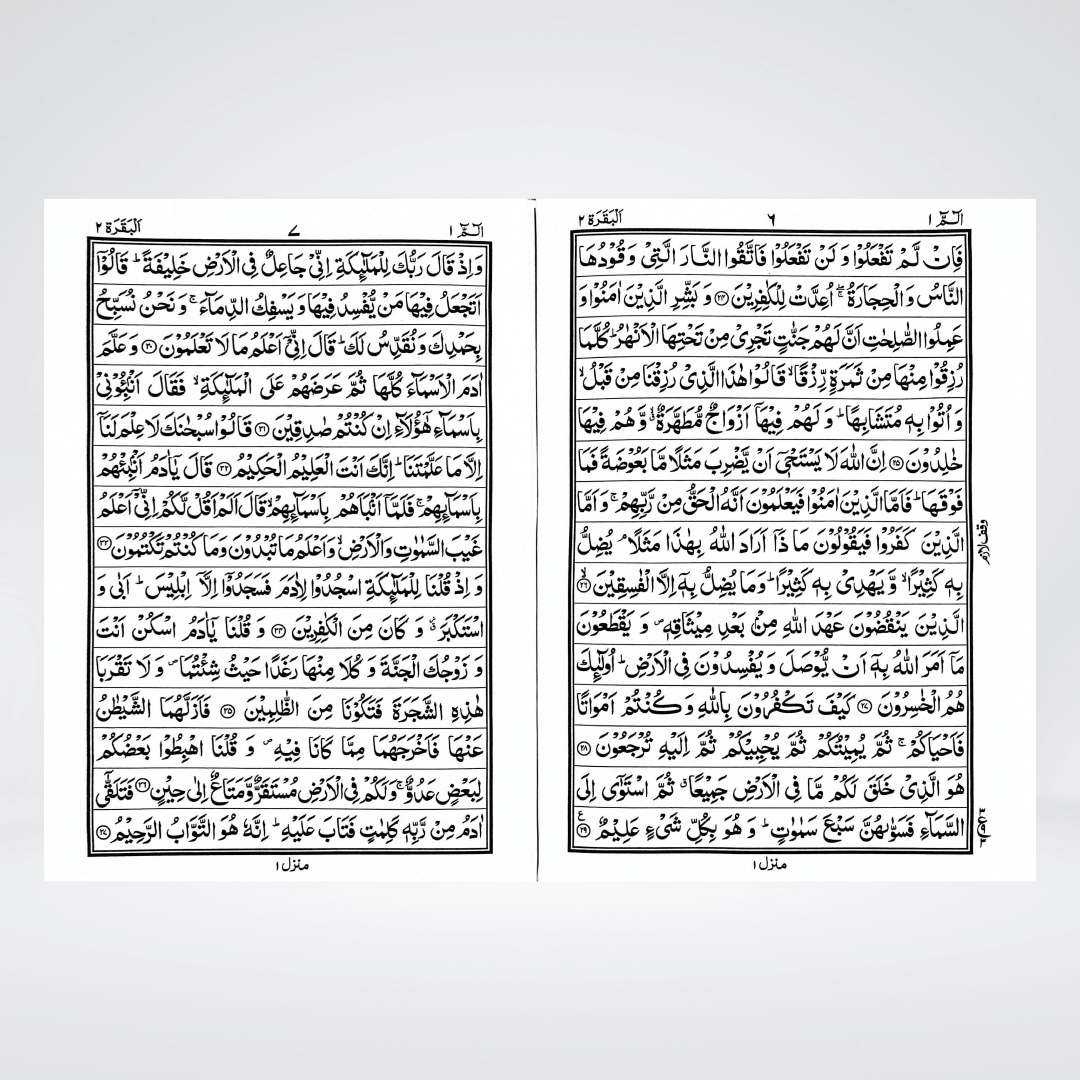 الٓمّٓ ١ ٦ اَلْبَقَرَة ٢
فَاِنْ لَّمْ تَفْعَلُوْا وَ لَنْ تَفْعَلُوْا فَاتَّقُوا النَّارَ الَّتِیْ وَقُوْدُهَا
النَّاسُ وَ الْحِجَارَةُ ۚۖ اُعِدَّتْ لِلْكٰفِرِیْنَ ﴿۲۴﴾ وَ بَشِّرِ الَّذِیْنَ اٰمَنُوْا وَ
عَمِلُوا الصّٰلِحٰتِ اَنَّ لَهُمْ جَنّٰتٍ تَجْرِیْ مِنْ تَحْتِهَا الْاَنْهٰرُ ؕ كُلَّمَا
رُزِقُوْا مِنْهَا مِنْ ثَمَرَةٍ رِّزْقًا ۙ قَالُوْا هٰذَا الَّذِیْ رُزِقْنَا مِنْ قَبْلُ ۙ
وَ اُتُوْا بِهٖ مُتَشَابِهًا ؕ وَ لَهُمْ فِیْهَاۤ اَزْوَاجٌ مُّطَهَّرَةٌ ۙۗ وَّ هُمْ فِیْهَا
خٰلِدُوْنَ ﴿۲۵﴾ اِنَّ اللّٰهَ لَا یَسْتَحْیٖۤ اَنْ یَّضْرِبَ مَثَلًا مَّا بَعُوْضَةً فَمَا
فَوْقَهَا ؕ فَاَمَّا الَّذِیْنَ اٰمَنُوْا فَیَعْلَمُوْنَ اَنَّهُ الْحَقُّ مِنْ رَّبِّهِمْ ۚ وَ اَمَّا
الَّذِیْنَ كَفَرُوْا فَیَقُوْلُوْنَ مَا ذَاۤ اَرَادَ اللّٰهُ بِهٰذَا مَثَلًا ۘ یُضِلُّ
وقف لازم
بِهٖ كَثِیْرًا ۙ وَّ یَهْدِیْ بِهٖ كَثِیْرًا ؕ وَ مَا یُضِلُّ بِهٖۤ اِلَّا الْفٰسِقِیْنَ ﴿ۙ۲۶﴾
الَّذِیْنَ یَنْقُضُوْنَ عَهْدَ اللّٰهِ مِنْۢ بَعْدِ مِیْثَاقِهٖ ۪ وَ یَقْطَعُوْنَ
مَاۤ اَمَرَ اللّٰهُ بِهٖۤ اَنْ یُّوْصَلَ وَ یُفْسِدُوْنَ فِی الْاَرْضِ ؕ اُولٰٓئِكَ
هُمُ الْخٰسِرُوْنَ ﴿۲۷﴾ كَیْفَ تَكْفُرُوْنَ بِاللّٰهِ وَ كُنْتُمْ اَمْوَاتًا
فَاَحْیَاكُمْ ۚ ثُمَّ یُمِیْتُكُمْ ثُمَّ یُحْیِیْكُمْ ثُمَّ اِلَیْهِ تُرْجَعُوْنَ ﴿۲۸﴾
هُوَ الَّذِیْ خَلَقَ لَكُمْ مَّا فِی الْاَرْضِ جَمِیْعًا ۗ ثُمَّ اسْتَوٰۤی اِلَی
السَّمَآءِ فَسَوّٰىهُنَّ سَبْعَ سَمٰوٰتٍ ؕ وَ هُوَ بِكُلِّ شَیْءٍ عَلِیْمٌ ﴿۲۹﴾
منزل ١
الٓمّٓ ١ ٧ اَلْبَقَرَة ٢
وَ اِذْ قَالَ رَبُّكَ لِلْمَلٰٓئِكَةِ اِنِّیْ جَاعِلٌ فِی الْاَرْضِ خَلِیْفَةً ؕ قَالُوْۤا
اَتَجْعَلُ فِیْهَا مَنْ یُّفْسِدُ فِیْهَا وَ یَسْفِكُ الدِّمَآءَ ۚ وَ نَحْنُ نُسَبِّحُ
بِحَمْدِكَ وَ نُقَدِّسُ لَكَ ؕ قَالَ اِنِّیْۤ اَعْلَمُ مَا لَا تَعْلَمُوْنَ ﴿۳۰﴾ وَ عَلَّمَ
اٰدَمَ الْاَسْمَآءَ كُلَّهَا ثُمَّ عَرَضَهُمْ عَلَی الْمَلٰٓئِكَةِ ۙ فَقَالَ اَنْۢبِـُٔوْنِیْ
بِاَسْمَآءِ هٰۤؤُلَآءِ اِنْ كُنْتُمْ صٰدِقِیْنَ ﴿۳۱﴾ قَالُوْا سُبْحٰنَكَ لَا عِلْمَ لَنَاۤ
اِلَّا مَا عَلَّمْتَنَا ؕ اِنَّكَ اَنْتَ الْعَلِیْمُ الْحَكِیْمُ ﴿۳۲﴾ قَالَ یٰۤاٰدَمُ اَنْۢبِئْهُمْ
بِاَسْمَآئِهِمْ ۚ فَلَمَّاۤ اَنْۢبَاَهُمْ بِاَسْمَآئِهِمْ ۙ قَالَ اَلَمْ اَقُلْ لَّكُمْ اِنِّیْۤ اَعْلَمُ
غَیْبَ السَّمٰوٰتِ وَ الْاَرْضِ ۙ وَ اَعْلَمُ مَا تُبْدُوْنَ وَ مَا كُنْتُمْ تَكْتُمُوْنَ ﴿۳۳﴾
وَ اِذْ قُلْنَا لِلْمَلٰٓئِكَةِ اسْجُدُوْا لِاٰدَمَ فَسَجَدُوْۤا اِلَّاۤ اِبْلِیْسَ ؕ اَبٰی وَ
اسْتَكْبَرَ ٭۫ وَ كَانَ مِنَ الْكٰفِرِیْنَ ﴿۳۴﴾ وَ قُلْنَا یٰۤاٰدَمُ اسْكُنْ اَنْتَ
وَ زَوْجُكَ الْجَنَّةَ وَ كُلَا مِنْهَا رَغَدًا حَیْثُ شِئْتُمَا ۪ وَ لَا تَقْرَبَا
هٰذِهِ الشَّجَرَةَ فَتَكُوْنَا مِنَ الظّٰلِمِیْنَ ﴿۳۵﴾ فَاَزَلَّهُمَا الشَّیْطٰنُ
عَنْهَا فَاَخْرَجَهُمَا مِمَّا كَانَا فِیْهِ ۪ وَ قُلْنَا اهْبِطُوْا بَعْضُكُمْ
لِبَعْضٍ عَدُوٌّ ۚ وَ لَكُمْ فِی الْاَرْضِ مُسْتَقَرٌّ وَّ مَتَاعٌ اِلٰی حِیْنٍ ﴿۳۶﴾ فَتَلَقّٰۤی
اٰدَمُ مِنْ رَّبِّهٖ كَلِمٰتٍ فَتَابَ عَلَیْهِ ؕ اِنَّهٗ هُوَ التَّوَّابُ الرَّحِیْمُ ﴿۳۷﴾
منزل ١